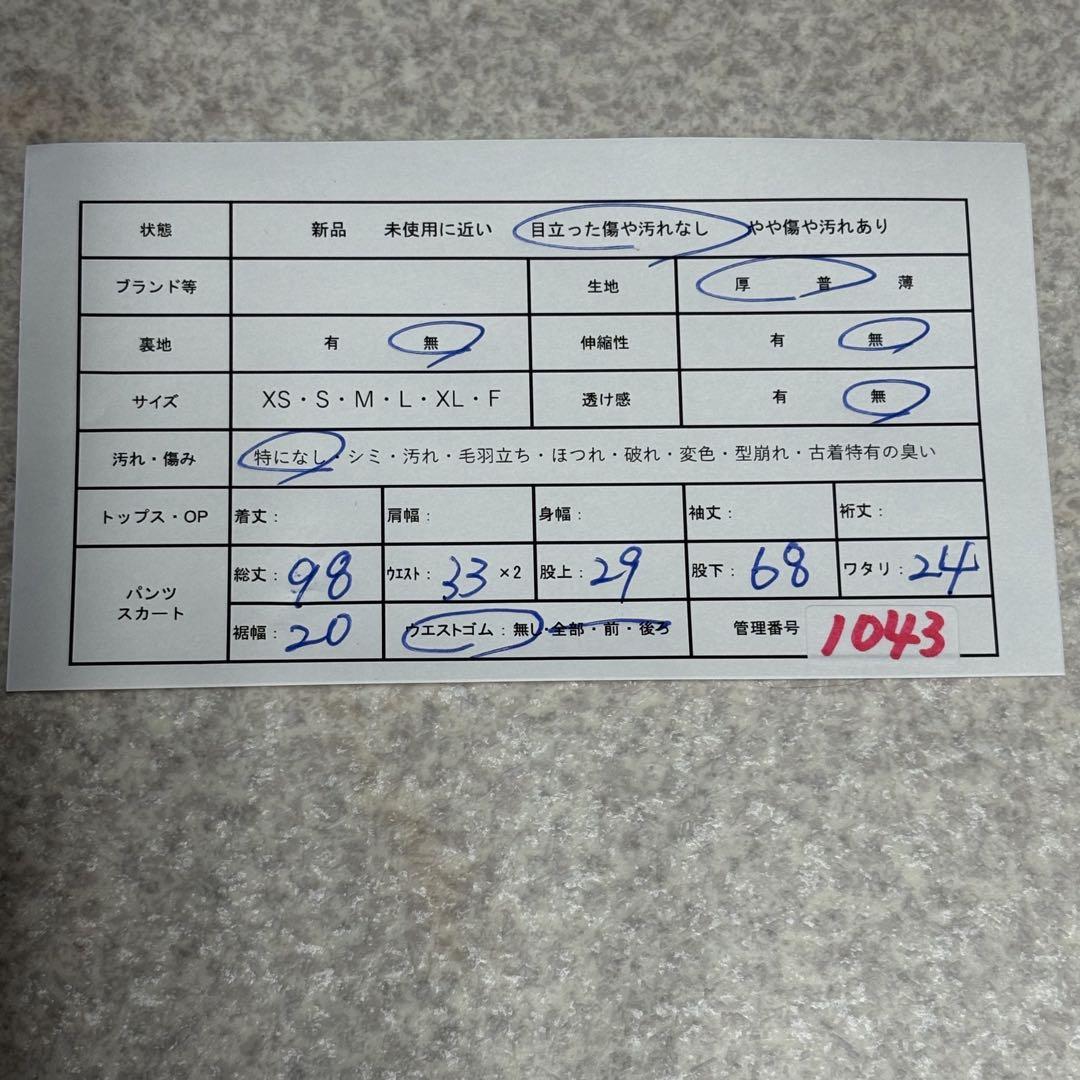 状態 新品 未使用に近い 目立った傷や汚れなし やや傷や汚れあり
ブランド等 生地 厚 普 薄
裏地 有 無 伸縮性 有 無
サイズ XS・S・M・L・XL・F 透け感 有 無
汚れ・傷み 特になし・シミ・汚れ・毛羽立ち・ほつれ・破れ・変色・型崩れ・古着特有の臭い
トップス・OP 着丈： 肩幅： 身幅： 袖丈： 裄丈：
パンツ スカート 総丈：98 ウエスト：33 ×2 股上：29 股下：68 ワタリ：24
裾幅：20 ウエストゴム：無し・全部・前・後ろ 管理番号 1043